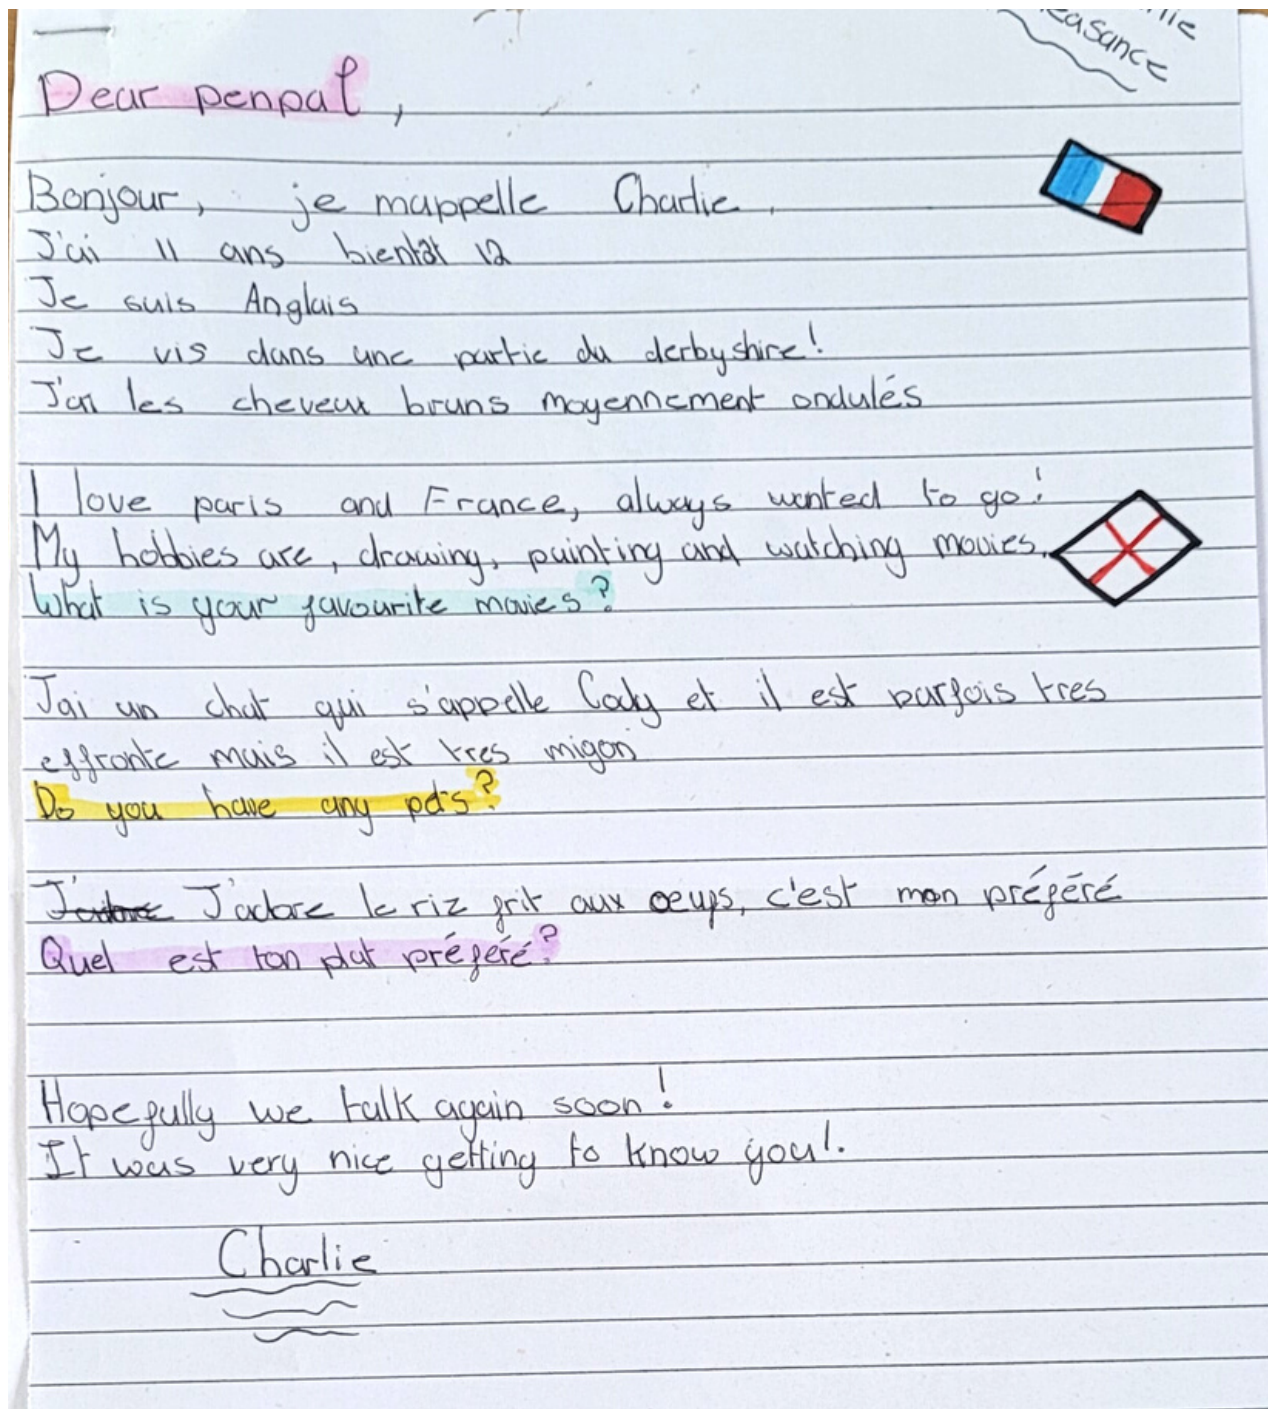 Dear penpal,
Bonjour, je mappelle Charlie.
J'ai 11 ans bientôt 12
Je suis Anglais
Je vis dans une partie du derbyshire!
J'ai les cheveux bruns moyennement ondulés
I love paris and France, always wanted to go!
My hobbies are, drawing, painting and watching movies.
What is your favourite movies?
J'ai un chat qui s'appelle Cody et il est parfois tres
effronte mais il est tres migon
Do you have any pets?
J'adore le riz frit aux oeufs, c'est mon préféré
Quel est ton plat préféré?
Hopefully we talk again soon!
It was very nice getting to know you!.
Charlie